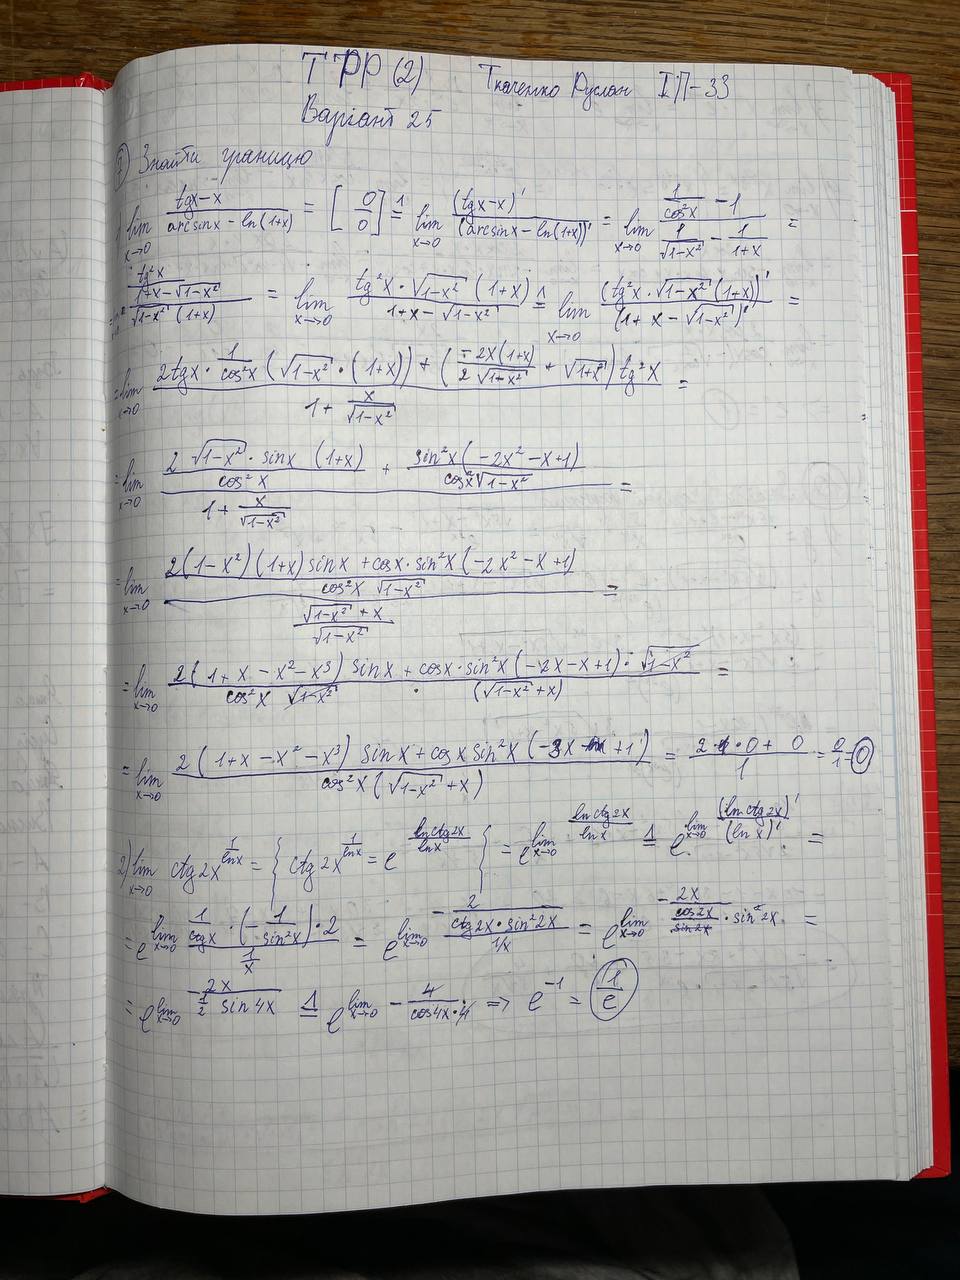 ТРР (2) Ткаченко Руслан ІП-33
Варіант 25
① Знайти границю
1) lim x→0 (tgx-x)/(arcsinx - ln(1+x)) = [0/0] =^Л lim x→0 (tgx-x)'/(arcsinx - ln(1+x))' = lim x→0 (1/cos²x - 1)/(1/√(1-x²) - 1/(1+x)) =
= lim x→0 (tg²x)/((1+x-√(1-x²))/(√(1-x²) (1+x))) = lim x→0 (tg²x · √(1-x²) (1+x))/(1+x-√(1-x²)) =^Л lim x→0 (tg²x · √(1-x²) (1+x))'/(1+x-√(1-x²))' =
= lim x→0 (2tgx · 1/cos²x (√(1-x²) · (1+x)) + (-2x(1+x)/(2√(1+x²)) + √(1+x²)) tg²x)/(1 + x/√(1-x²)) =
= lim x→0 ((2 √(1-x²) · sinx (1+x))/(cos²x) + (sin²x(-2x²-x+1))/(cos²x √(1-x²)))/(1 + x/√(1-x²)) =
= lim x→0 ((2(1-x²)(1+x) sinx + cosx · sin²x(-2x²-x+1))/(cos²x √(1-x²)))/((√(1-x²) + x)/√(1-x²)) =
= lim x→0 (2(1+x-x²-x³) sinx + cosx · sin²x(-2x-x+1) · √(1-x²))/(cos²x √(1-x²) · (√(1-x²)+x)) =
= lim x→0 (2(1+x-x²-x³) sinx + cosx sin²x(-3x+1))/(cos²x(√(1-x²)+x)) = (2·1·0 + 0)/1 = 0/1 = 0
2) lim x→0 ctg2x^(1/lnx) = { ctg2x^(1/lnx) = e^(lnctg2x/lnx) } = e^(lim x→0 lnctg2x/lnx) =^Л e^(lim x→0 (lnctg2x)'/(lnx)') =
= e^(lim x→0 (1/ctgx · (-1/sin²x) · 2)/(1/x)) = e^(lim x→0 (-2/(ctg2x · sin²2x))/(1/x)) = e^(lim x→0 -2x/((cos2x/sin2x) · sin²2x)) =
= e^(lim x→0 -2x/(1/2 sin4x)) =^Л e^(lim x→0 -4/(cos4x·4)) ⇒ e^(-1) = 1/e